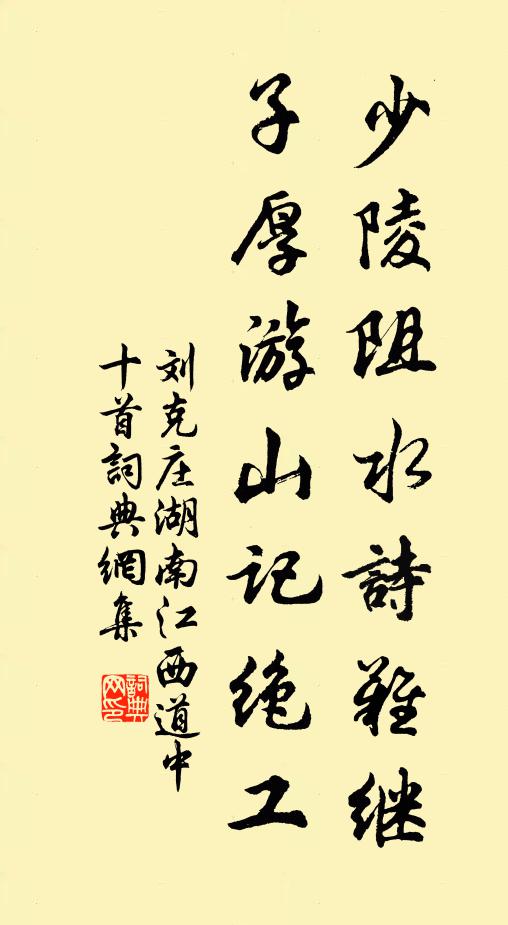 少陵阻水詩難继
子厚游山记绝工
刘克庄湖南江西道中
十首詞典網集
詞典
网印